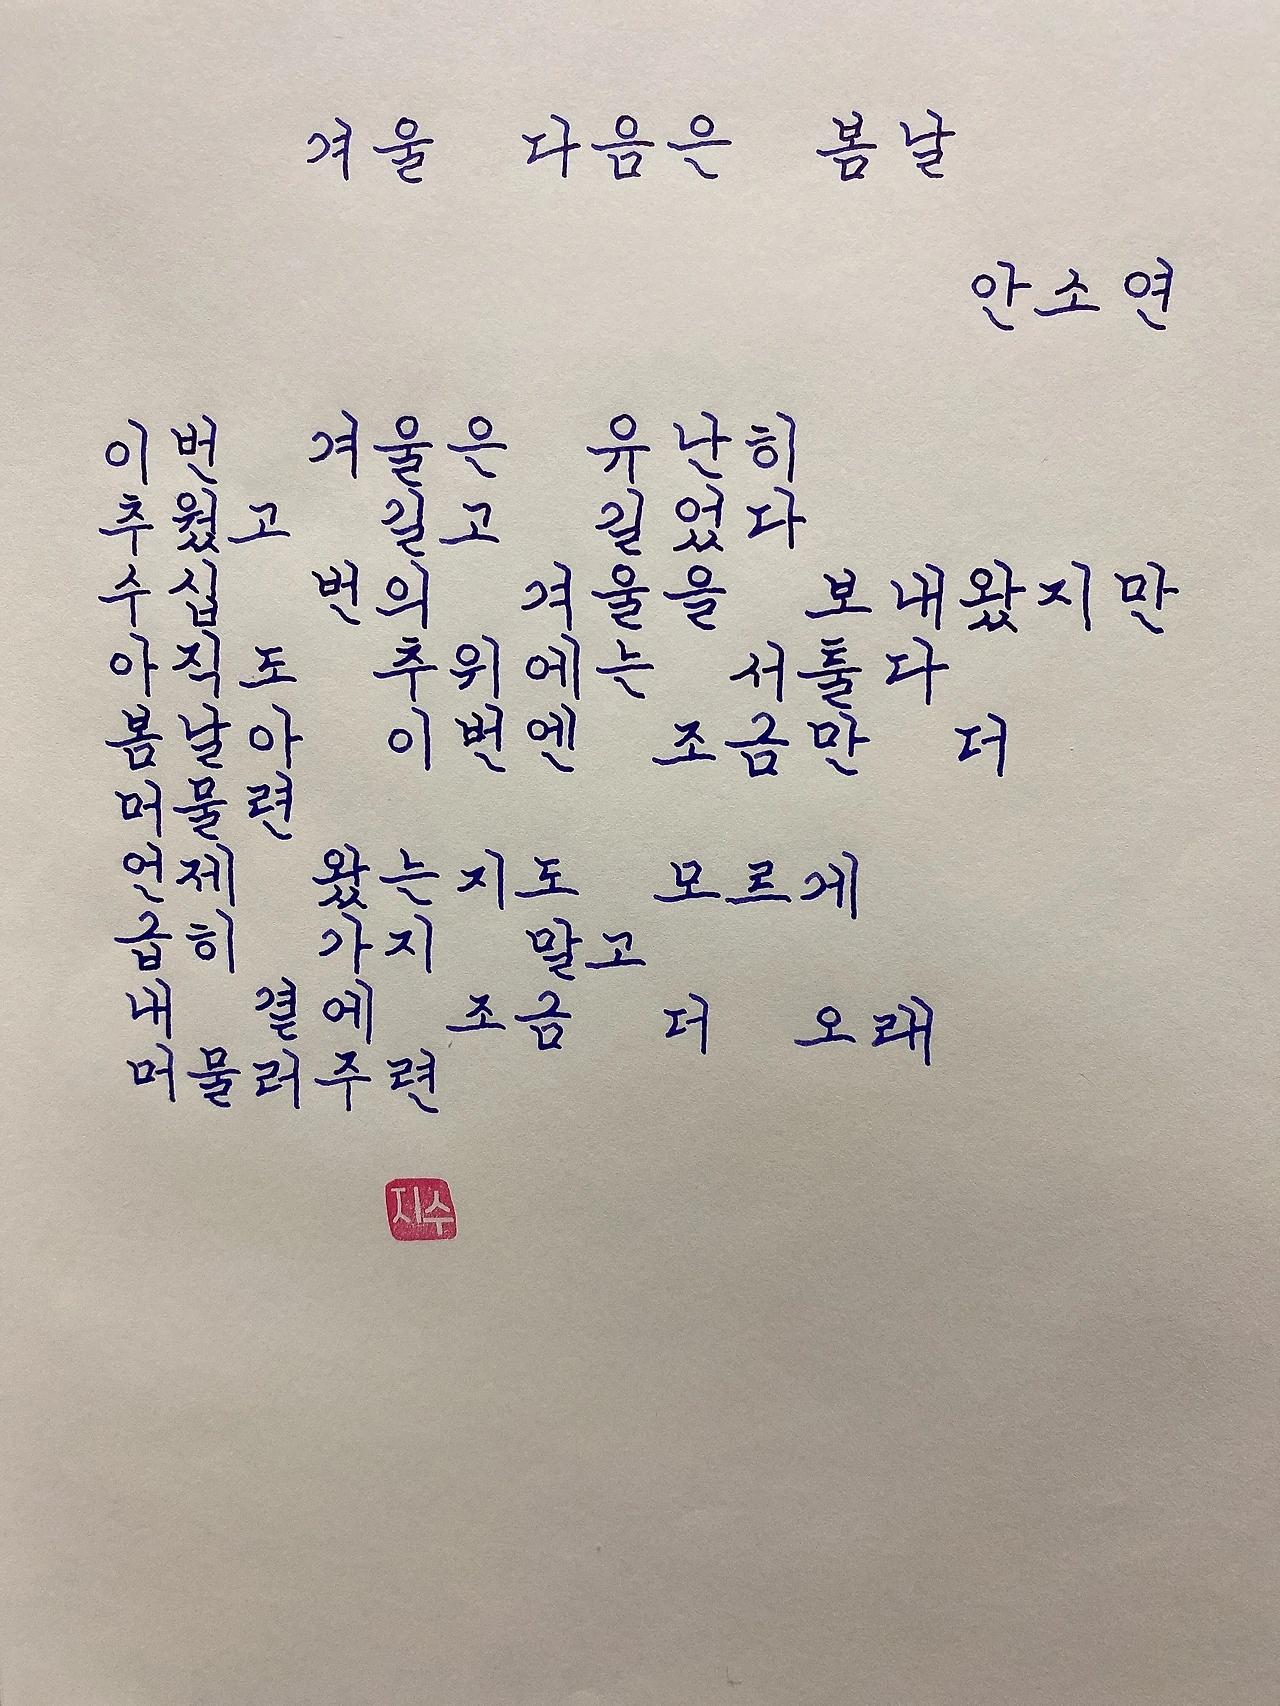 겨울 다음은 봄날
안소연
이번 겨울은 유난히
추웠고 길고 길었다
수십 번의 겨울을 보내왔지만
아직도 추위에는 서툴다
봄날아 이번엔 조금만 더
머물련
언제 왔는지도 모르게
급히 가지 말고
내 곁에 조금 더 오래
머물러주련
지수